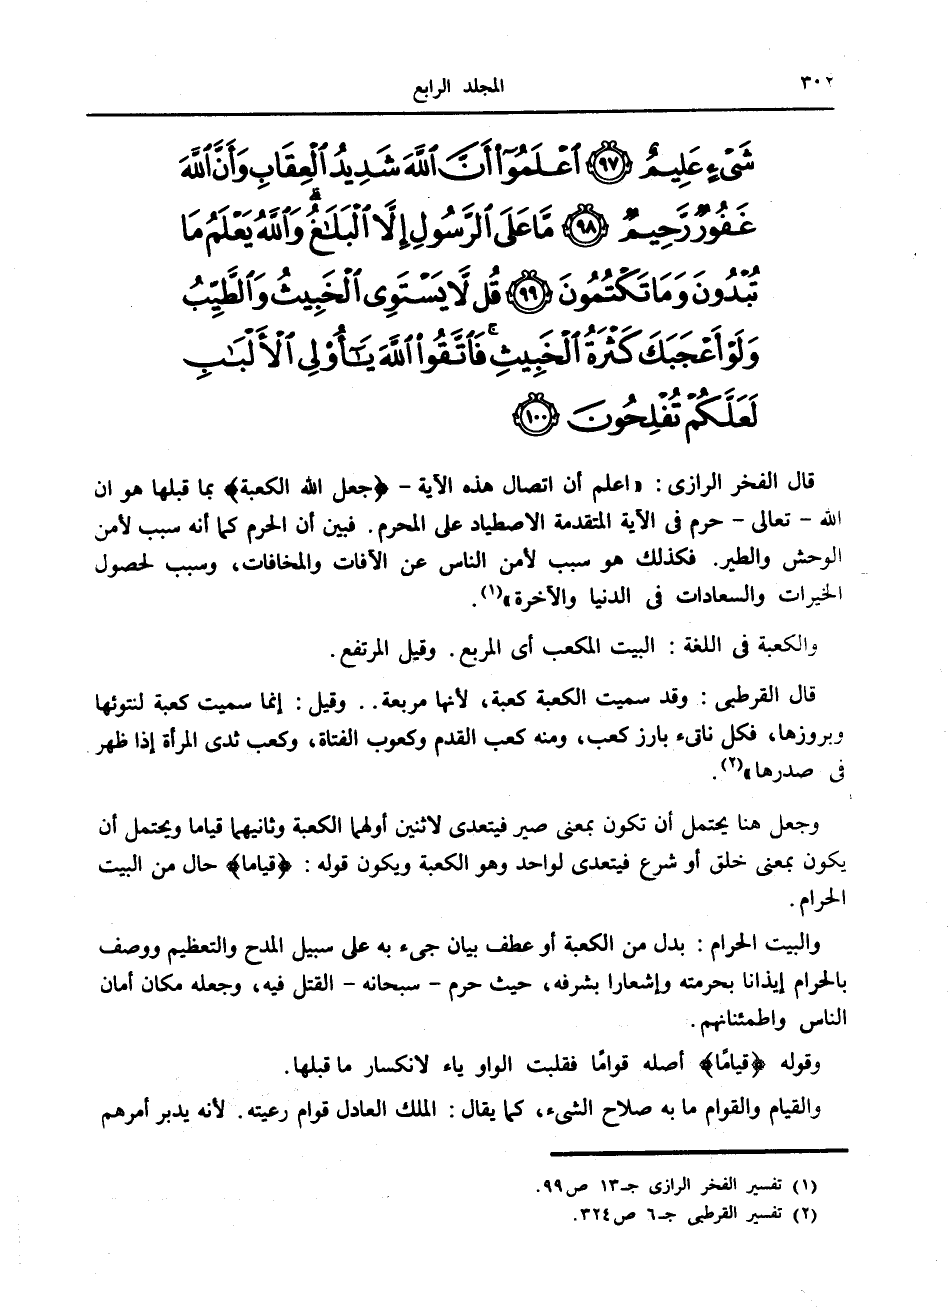 ٣٠٢
المجلد الرابع
شَىْءٍ عَلِيمٌ ﴿٩٧﴾ ٱعْلَمُوٓا۟ أَنَّ ٱللَّهَ شَدِيدُ ٱلْعِقَابِ وَأَنَّ ٱللَّهَ
غَفُورٌ رَّحِيمٌ ﴿٩٨﴾ مَّا عَلَى ٱلرَّسُولِ إِلَّا ٱلْبَلَـٰغُ ۗ وَٱللَّهُ يَعْلَمُ مَا
تُبْدُونَ وَمَا تَكْتُمُونَ ﴿٩٩﴾ قُل لَّا يَسْتَوِى ٱلْخَبِيثُ وَٱلطَّيِّبُ
وَلَوْ أَعْجَبَكَ كَثْرَةُ ٱلْخَبِيثِ ۚ فَٱتَّقُوا۟ ٱللَّهَ يَـٰٓأُو۟لِى ٱلْأَلْبَـٰبِ
لَعَلَّكُمْ تُفْلِحُونَ ﴿١٠٠﴾
قال الفخر الرازى : «اعلم أن اتصال هذه الآية – ﴿جعل الله الكعبة﴾ بما قبلها هو ان
الله – تعالى – حرم فى الآية المتقدمة الاصطياد على المحرم. فبين أن الحرم كما أنه سبب لأمن
الوحش والطير. فكذلك هو سبب لأمن الناس عن الآفات والمخافات، وسبب لحصول
الخيرات والسعادات فى الدنيا والآخرة»(١).
والكعبة فى اللغة : البيت المكعب أى المربع. وقيل المرتفع.
قال القرطبى : وقد سميت الكعبة كعبة، لأنها مربعة.. وقيل : إنما سميت كعبة لنتوئها
وبروزها، فكل ناتىء بارز كعب، ومنه كعب القدم وكعوب الفتاة، وكعب ثدى المرأة إذا ظهر
فى صدرها»(٢).
وجعل هنا يحتمل أن تكون بمعنى صير فيتعدى لاثنين أولهما الكعبة وثانيهما قياما ويحتمل أن
يكون بمعنى خلق أو شرع فيتعدى لواحد وهو الكعبة ويكون قوله : ﴿قياما﴾ حال من البيت
الحرام.
والبيت الحرام : بدل من الكعبة أو عطف بيان جىء به على سبيل المدح والتعظيم ووصف
بالحرام إيذانا بحرمته وإشعارا بشرفه، حيث حرم – سبحانه – القتل فيه، وجعله مكان أمان
الناس واطمئنانهم.
وقوله ﴿قيامًا﴾ أصله قوامًا فقلبت الواو ياء لانكسار ما قبلها.
والقيام والقوام ما به صلاح الشىء، كما يقال : الملك العادل قوام رعيته. لأنه يدبر أمرهم
(١) تفسير الفخر الرازى جـ١٣ ص٩٩.
(٢) تفسير القرطبى جـ٦ ص٣٢٤.